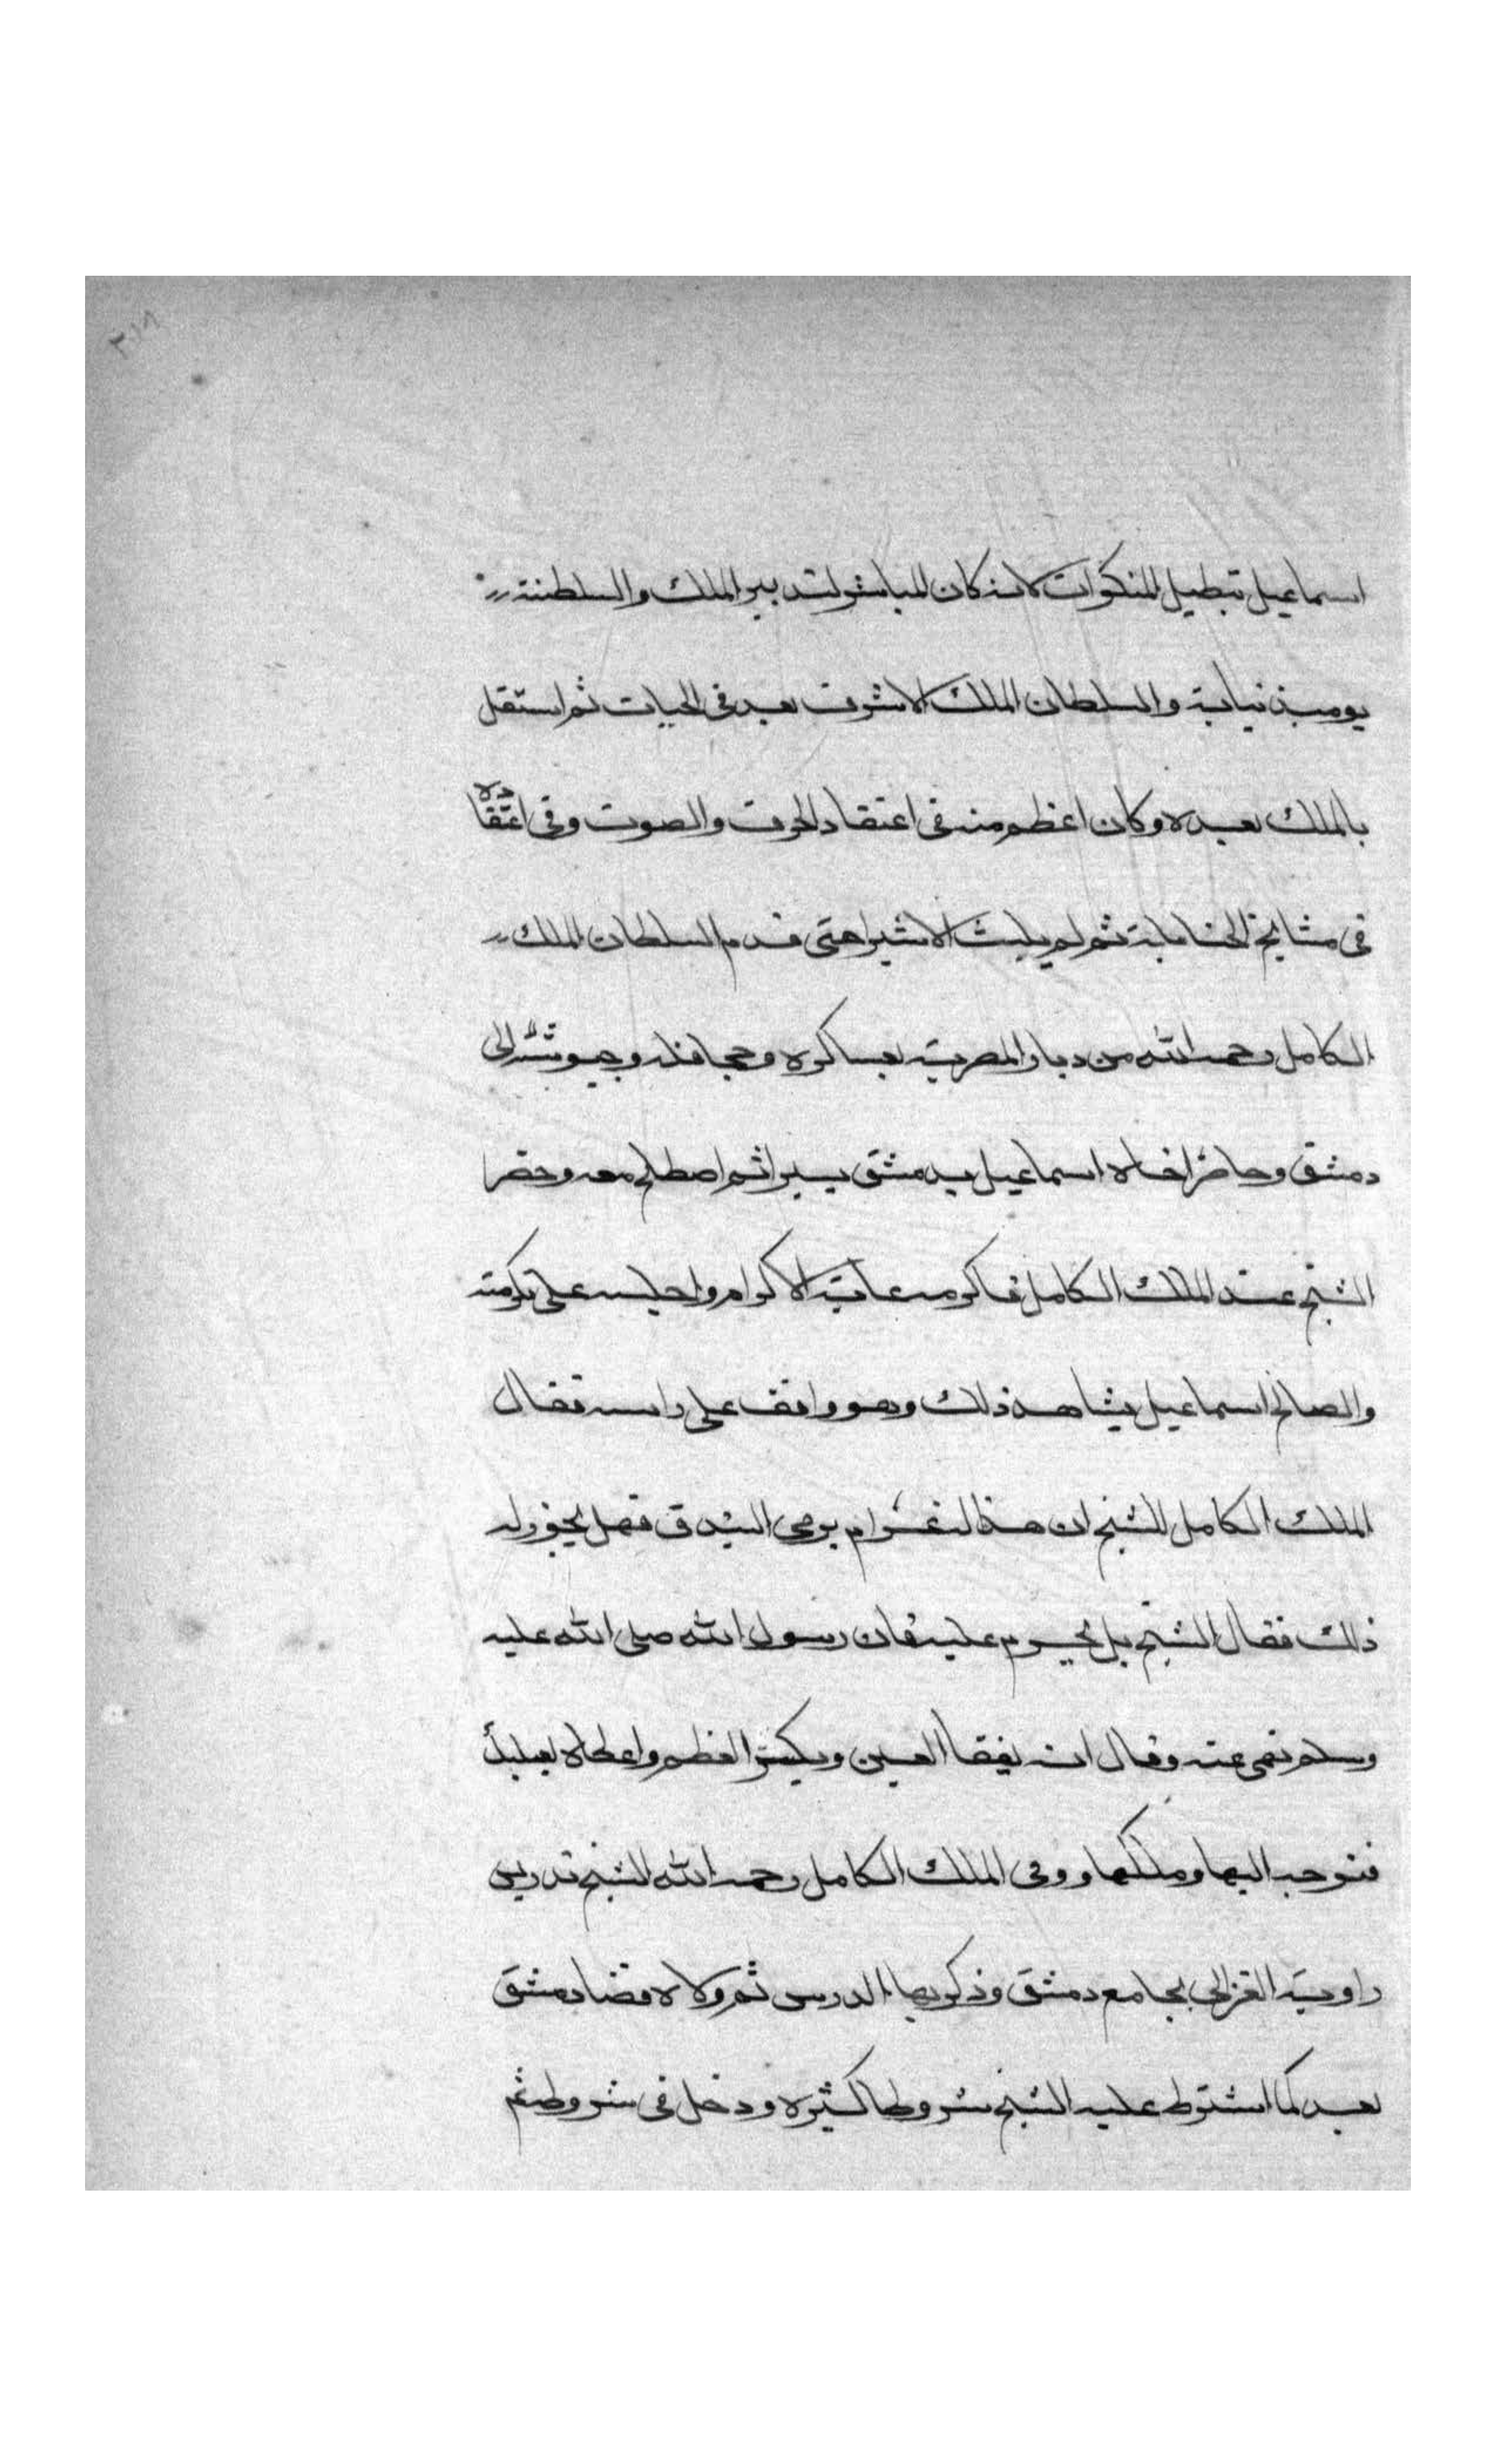 ٣١٨
اسماعيل تبطيل المنكرات لانه كان المباشر لتدبير الملك والسلطنة
يومئذ نيابة والسلطان الملك الاشرف بعد في الحيات ثم استقل
بالملك بعده وكان اعظم منه في اعتقاد الحرف والصوت وفي اعتقاده
في مشايخ الحنابلة ثم لم يلبث الا يسيرا حتى قدم السلطان الملك
الكامل رحمه الله من ديار المصرية بعساكره وحجافله وجيوشه الى
دمشق وحاصر اخاه اسماعيل بدمشق يسيرا ثم اصطلح معه وحضر
الشيخ عند الملك الكامل فاكرمه غاية الاكرام واجلسه على تكرمته
والصالح اسماعيل يشاهد ذلك وهو واقف على راسه فقال
الملك الكامل للشيخ ان هذا له غرام برمى البندق فهل يجوز له
ذلك فقال الشيخ بل يحرم عليه فان رسول الله صلى الله عليه
وسلم نهى عنه وقال انه يفقا العين ويكسر العظم واعطاه بعلبك
فتوجه اليها وملكها وولى الملك الكامل رحمه الله الشيخ تدريس
زاوية الغزالي بجامع دمشق وذكر بها الدرس ثم ولاه قضا دمشق
بعد كما اشترط عليه الشيخ شروطا كثيره ودخل في شروطه ثم